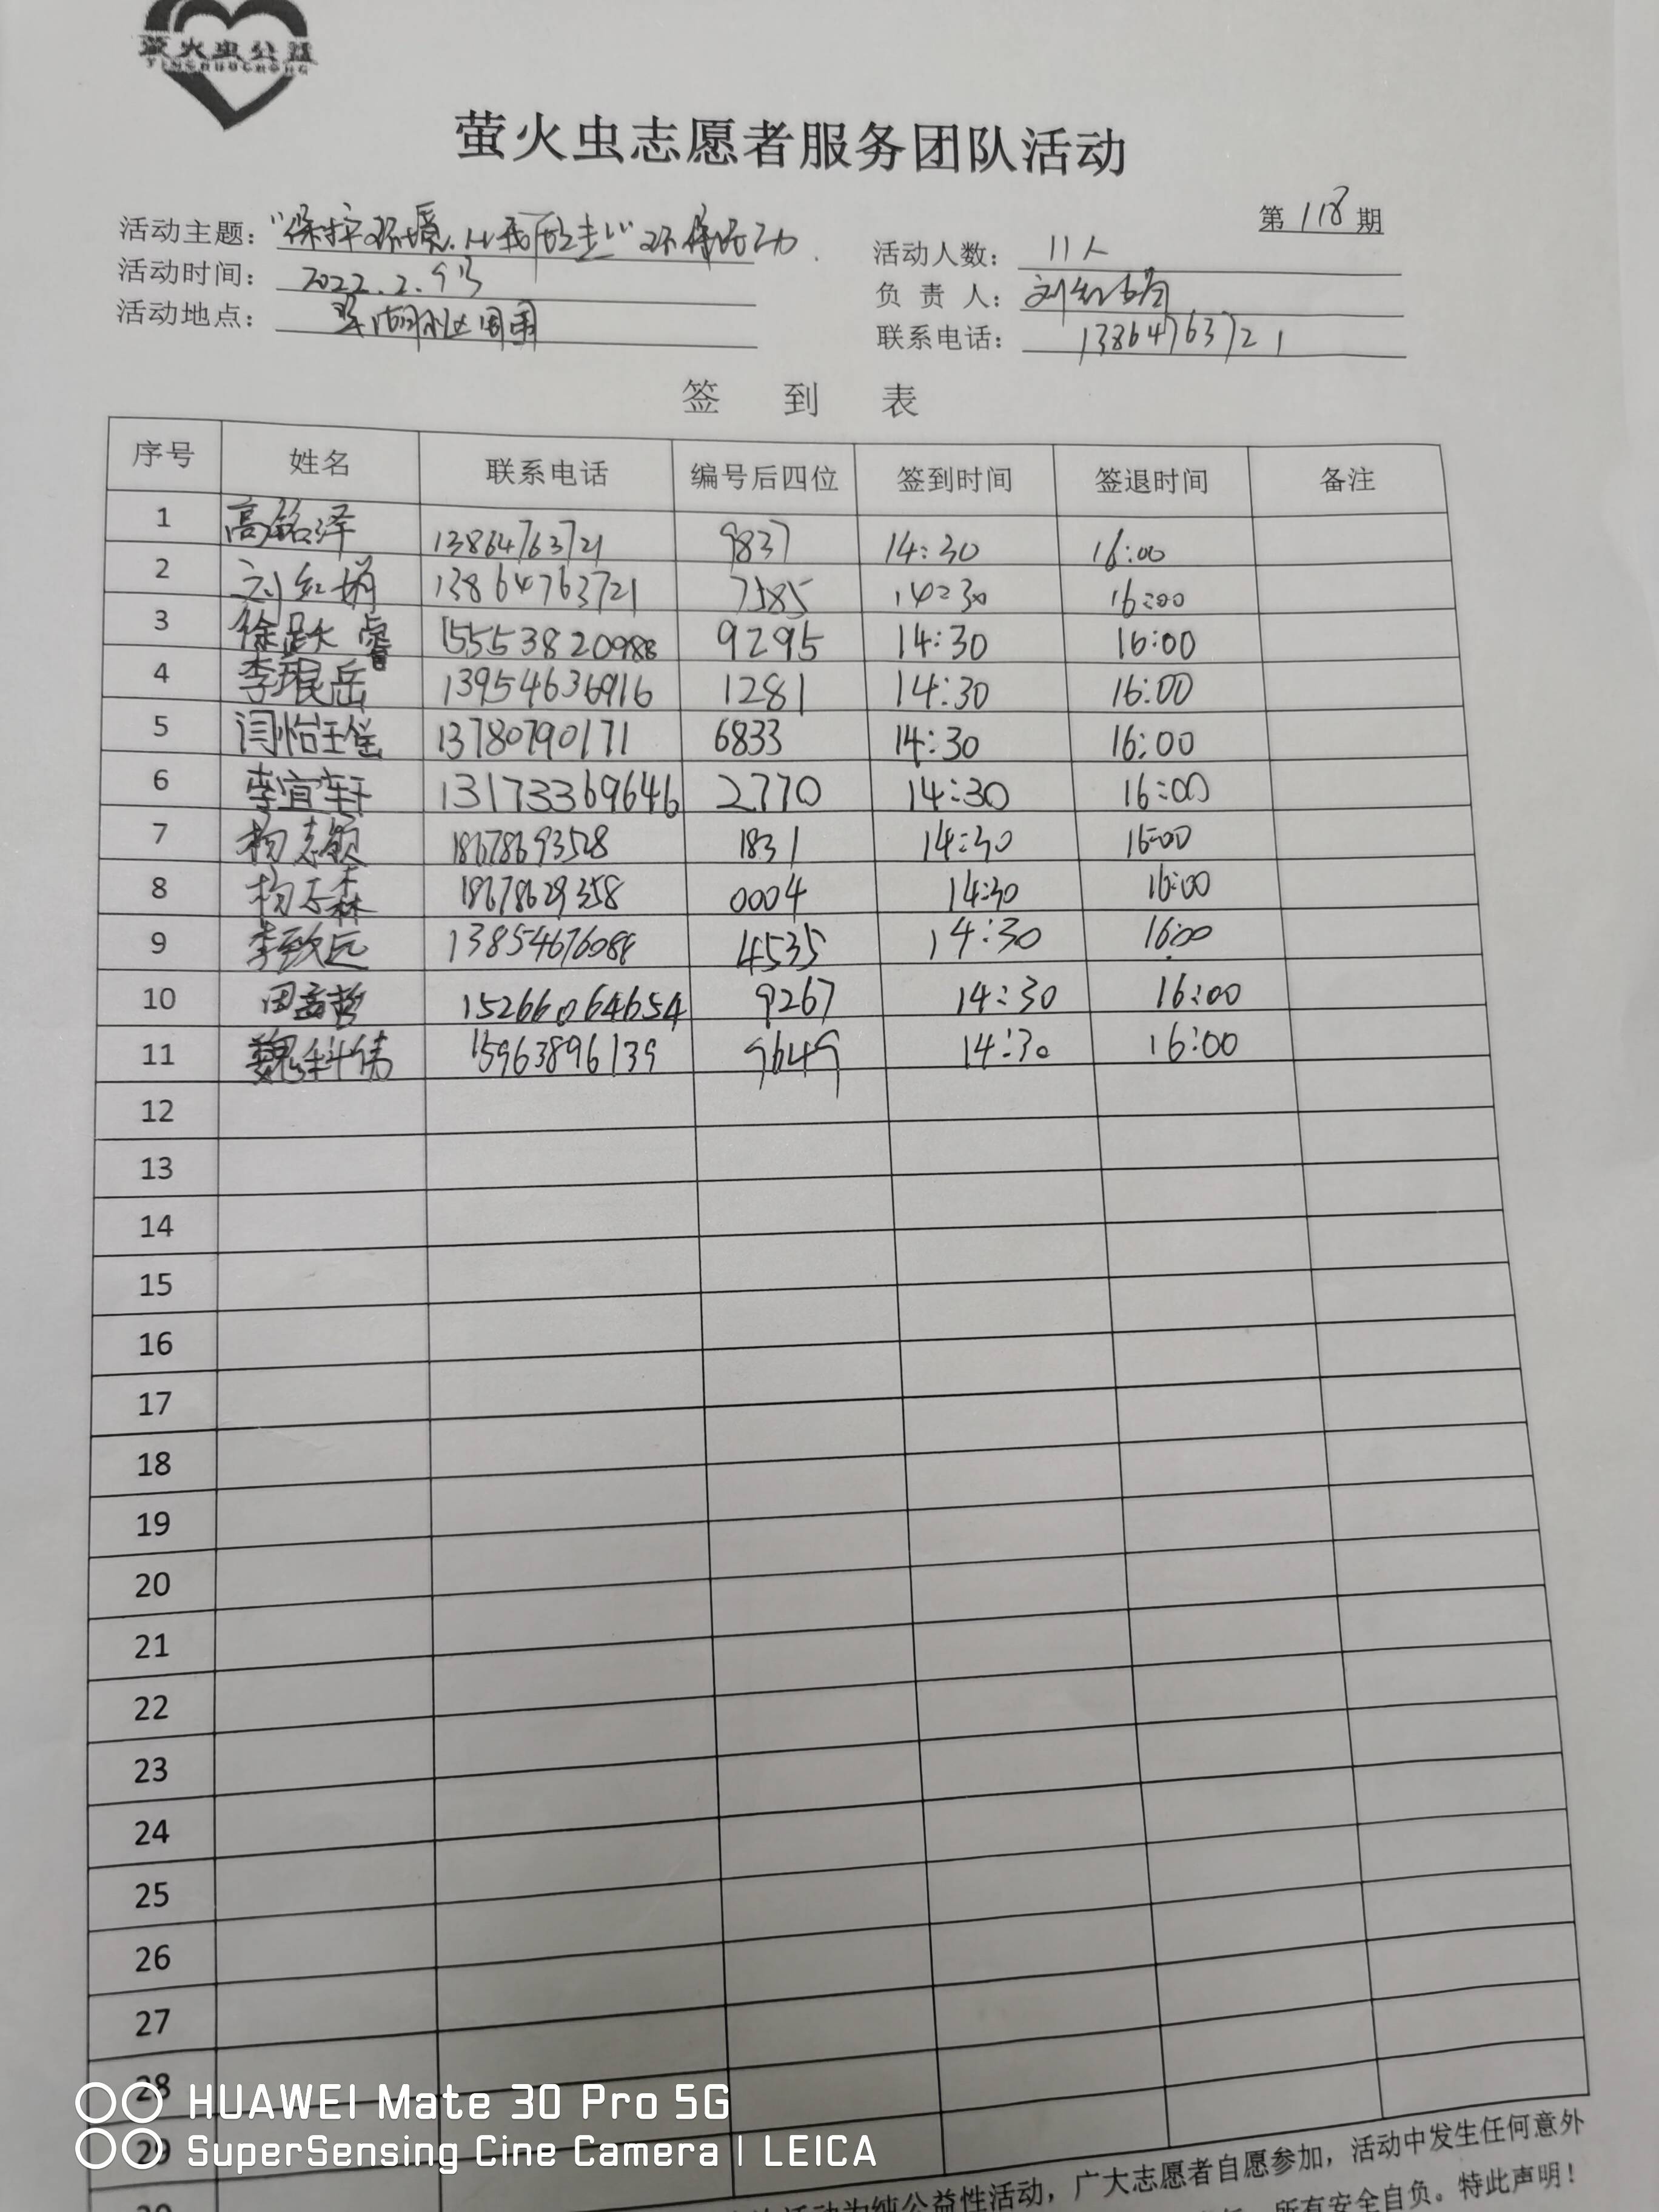 萤火虫公益
YINGHUOCHONG
萤火虫志愿者服务团队活动
第118期
活动主题："保护环境,从我做起"环保活动
活动人数：11人
活动时间：2022.2.9号
负责人：刘红娟
活动地点：翠湖小区周围
联系电话：13864763721
签到表
序号 姓名 联系电话 编号后四位 签到时间 签退时间 备注
1 高铭泽 13864763721 9837 14:30 16:00
2 刘红娟 13864763721 7585 14:30 16:00
3 徐跃睿 15553820988 9295 14:30 16:00
4 李琨岳 13954636916 1281 14:30 16:00
5 闫怡瑶 13780790171 6833 14:30 16:00
6 李宜轩 13173369646 2770 14:30 16:00
7 杨志颖 18678693528 1831 14:30 16:00
8 杨森 18678629358 0004 14:30 16:00
9 李致远 13854676088 4535 14:30 16:00
10 田哲 15266064654 9267 14:30 16:00
11 魏科伟 15963896139 9649 14:30 16:00
12
13
14
15
16
17
18
19
20
21
22
23
24
25
26
27
28
29
活动为纯公益性活动，广大志愿者自愿参加，活动中发生任何意外
所有安全自负。特此声明！
HUAWEI Mate 30 Pro 5G
SuperSensing Cine Camera | LEICA